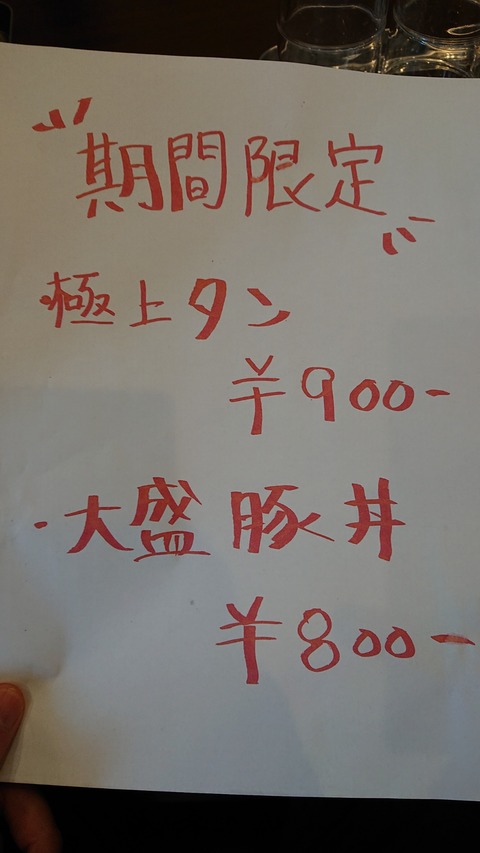 〃期間限定〃
・極上タン
¥900-
・大盛豚丼
¥800-